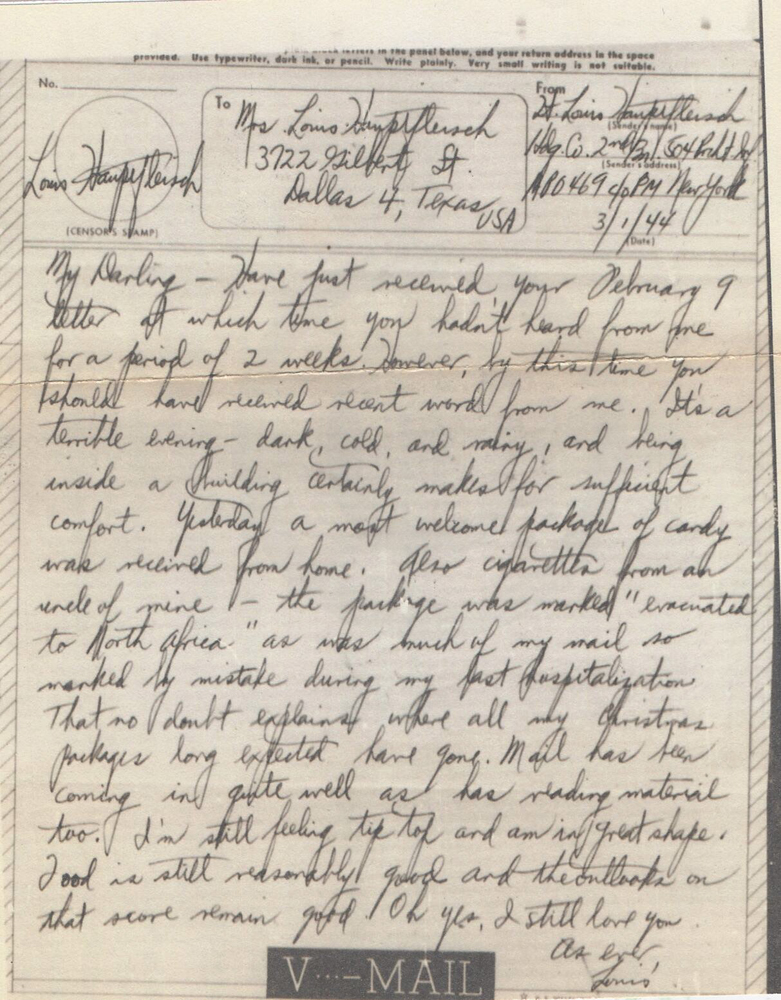 in the panel below, and your return address in the space
provided. Use typewriter, dark ink, or pencil. Write plainly. Very small writing is not suitable.
No.
To
From
Mrs. Louis Hauptfleisch
3722 Gilbert St.
Dallas 4, Texas
USA
Lt. Louis Hauptfleisch
(Sender's name)
Hdq. Co. 2nd Bn. 504 Prcht Inf
(Sender's address)
APO 469 c/o PM New York
3/1/44
(Date)
Louis Hauptfleisch
(CENSOR'S STAMP)
My Darling – Have just received your February 9
letter at which time you hadn't heard from me
for a period of 2 weeks. However, by this time you
should have received recent word from me. It's a
terrible evening – dark, cold, and rainy, and being
inside a building certainly makes for sufficient
comfort. Yesterday a most welcome package of candy
was received from home. Also cigarettes from an
uncle of mine – the package was marked "evacuated
to North Africa" as was much of my mail so
marked by mistake during my last hospitalization.
That no doubt explains where all my Christmas
packages long expected have gone. Mail has been
coming in quite well as has reading material
too. I'm still feeling tip top and am in great shape.
Food is still reasonably good and the outlooks on
that score remain good. Oh yes, I still love you
As ever,
Louis
V···–MAIL